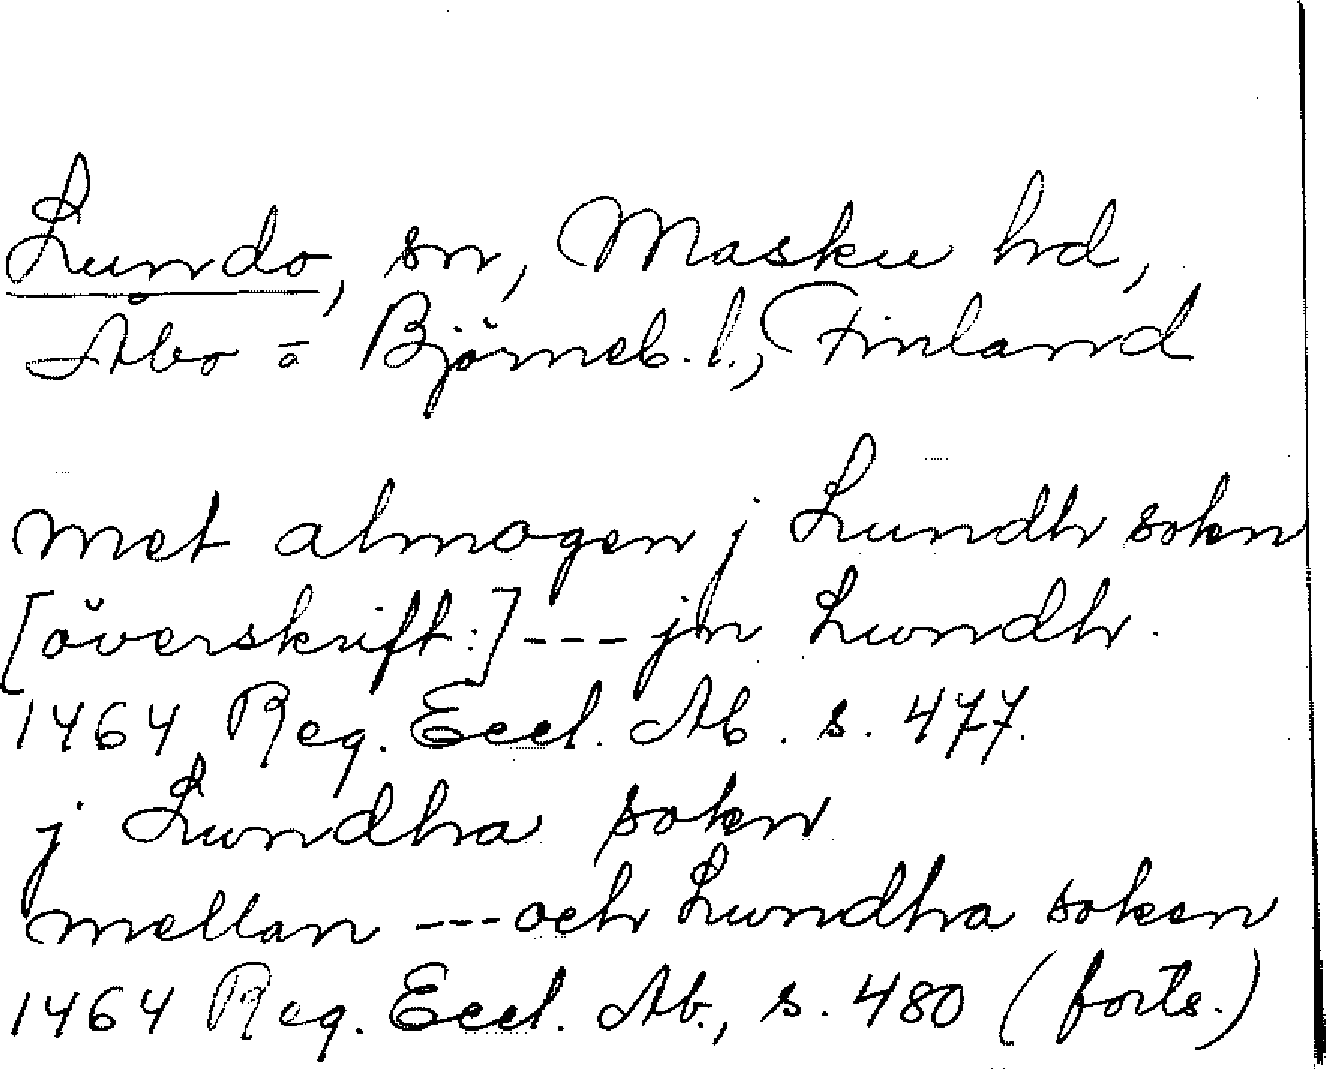 Lundo, sn, Masku hd,
Åbo- o Björneb. l., Finland
met almogen j Lundh sokn
[överskrift:] --- jn Lundh.
1464 Reg. Eccl. Ab. s. 477.
j Lundha sokn
mellan --- och Lundha soken
1464 Reg. Eccl. Ab., s. 480 (forts.)